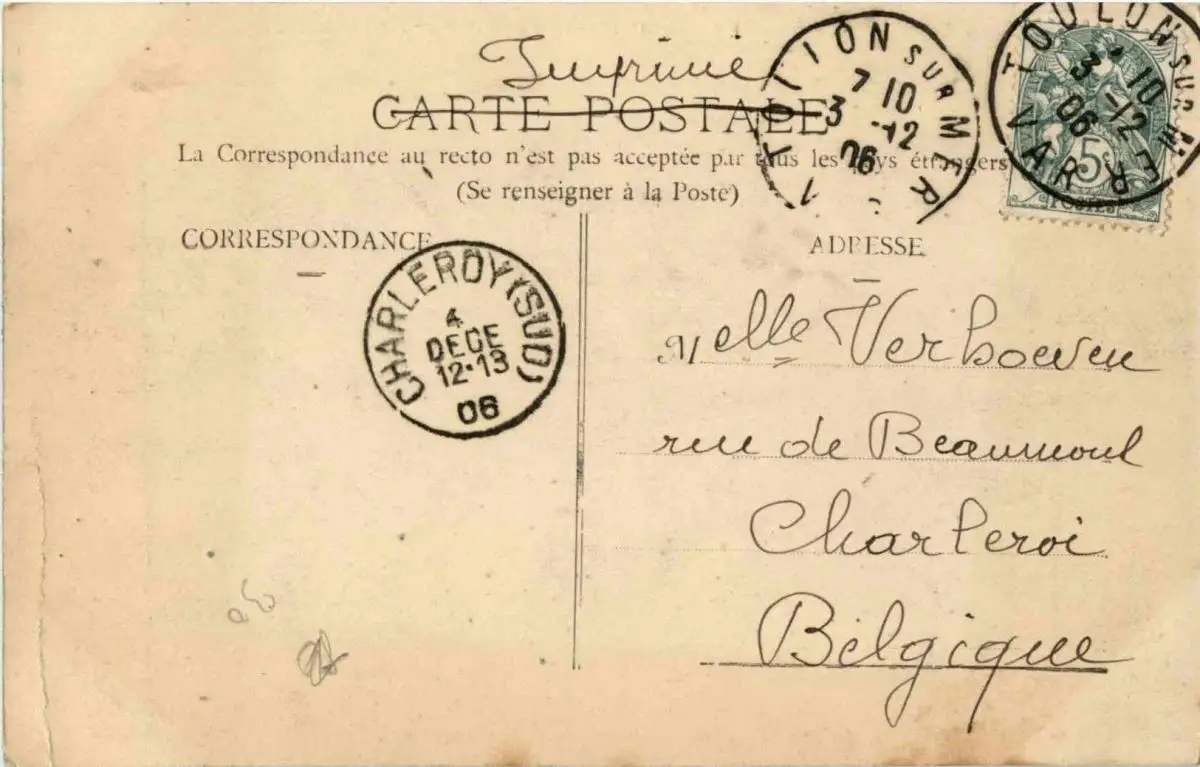 Imprimé
CARTE POSTALE
La Correspondance au recto n'est pas acceptée par tous les pays étrangers
(Se renseigner à la Poste)
CORRESPONDANCE
ADRESSE
TOULON SUR MER
7 10
3 -12
06
TOULON SUR MER
3 10
-12
06
VAR
5
POSTES
CHARLEROY (SUD)
4
DECE
12-13
06
Melle Verhoeven
rue de Beaumont
Charleroi
Belgique